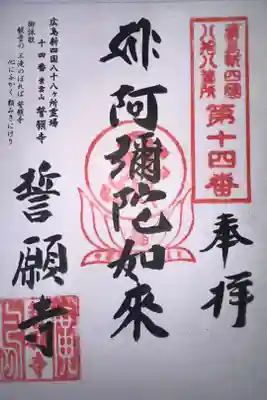 廣島新四國
八拾八箇所
第十四番
奉拝
阿彌陀如來
誓願寺
広島新四国八十八ヶ所霊場
十四番 誓願寺
御詠歌
観音の 三滝のぼれば 誓願寺
心にふかく 頼みきにけり